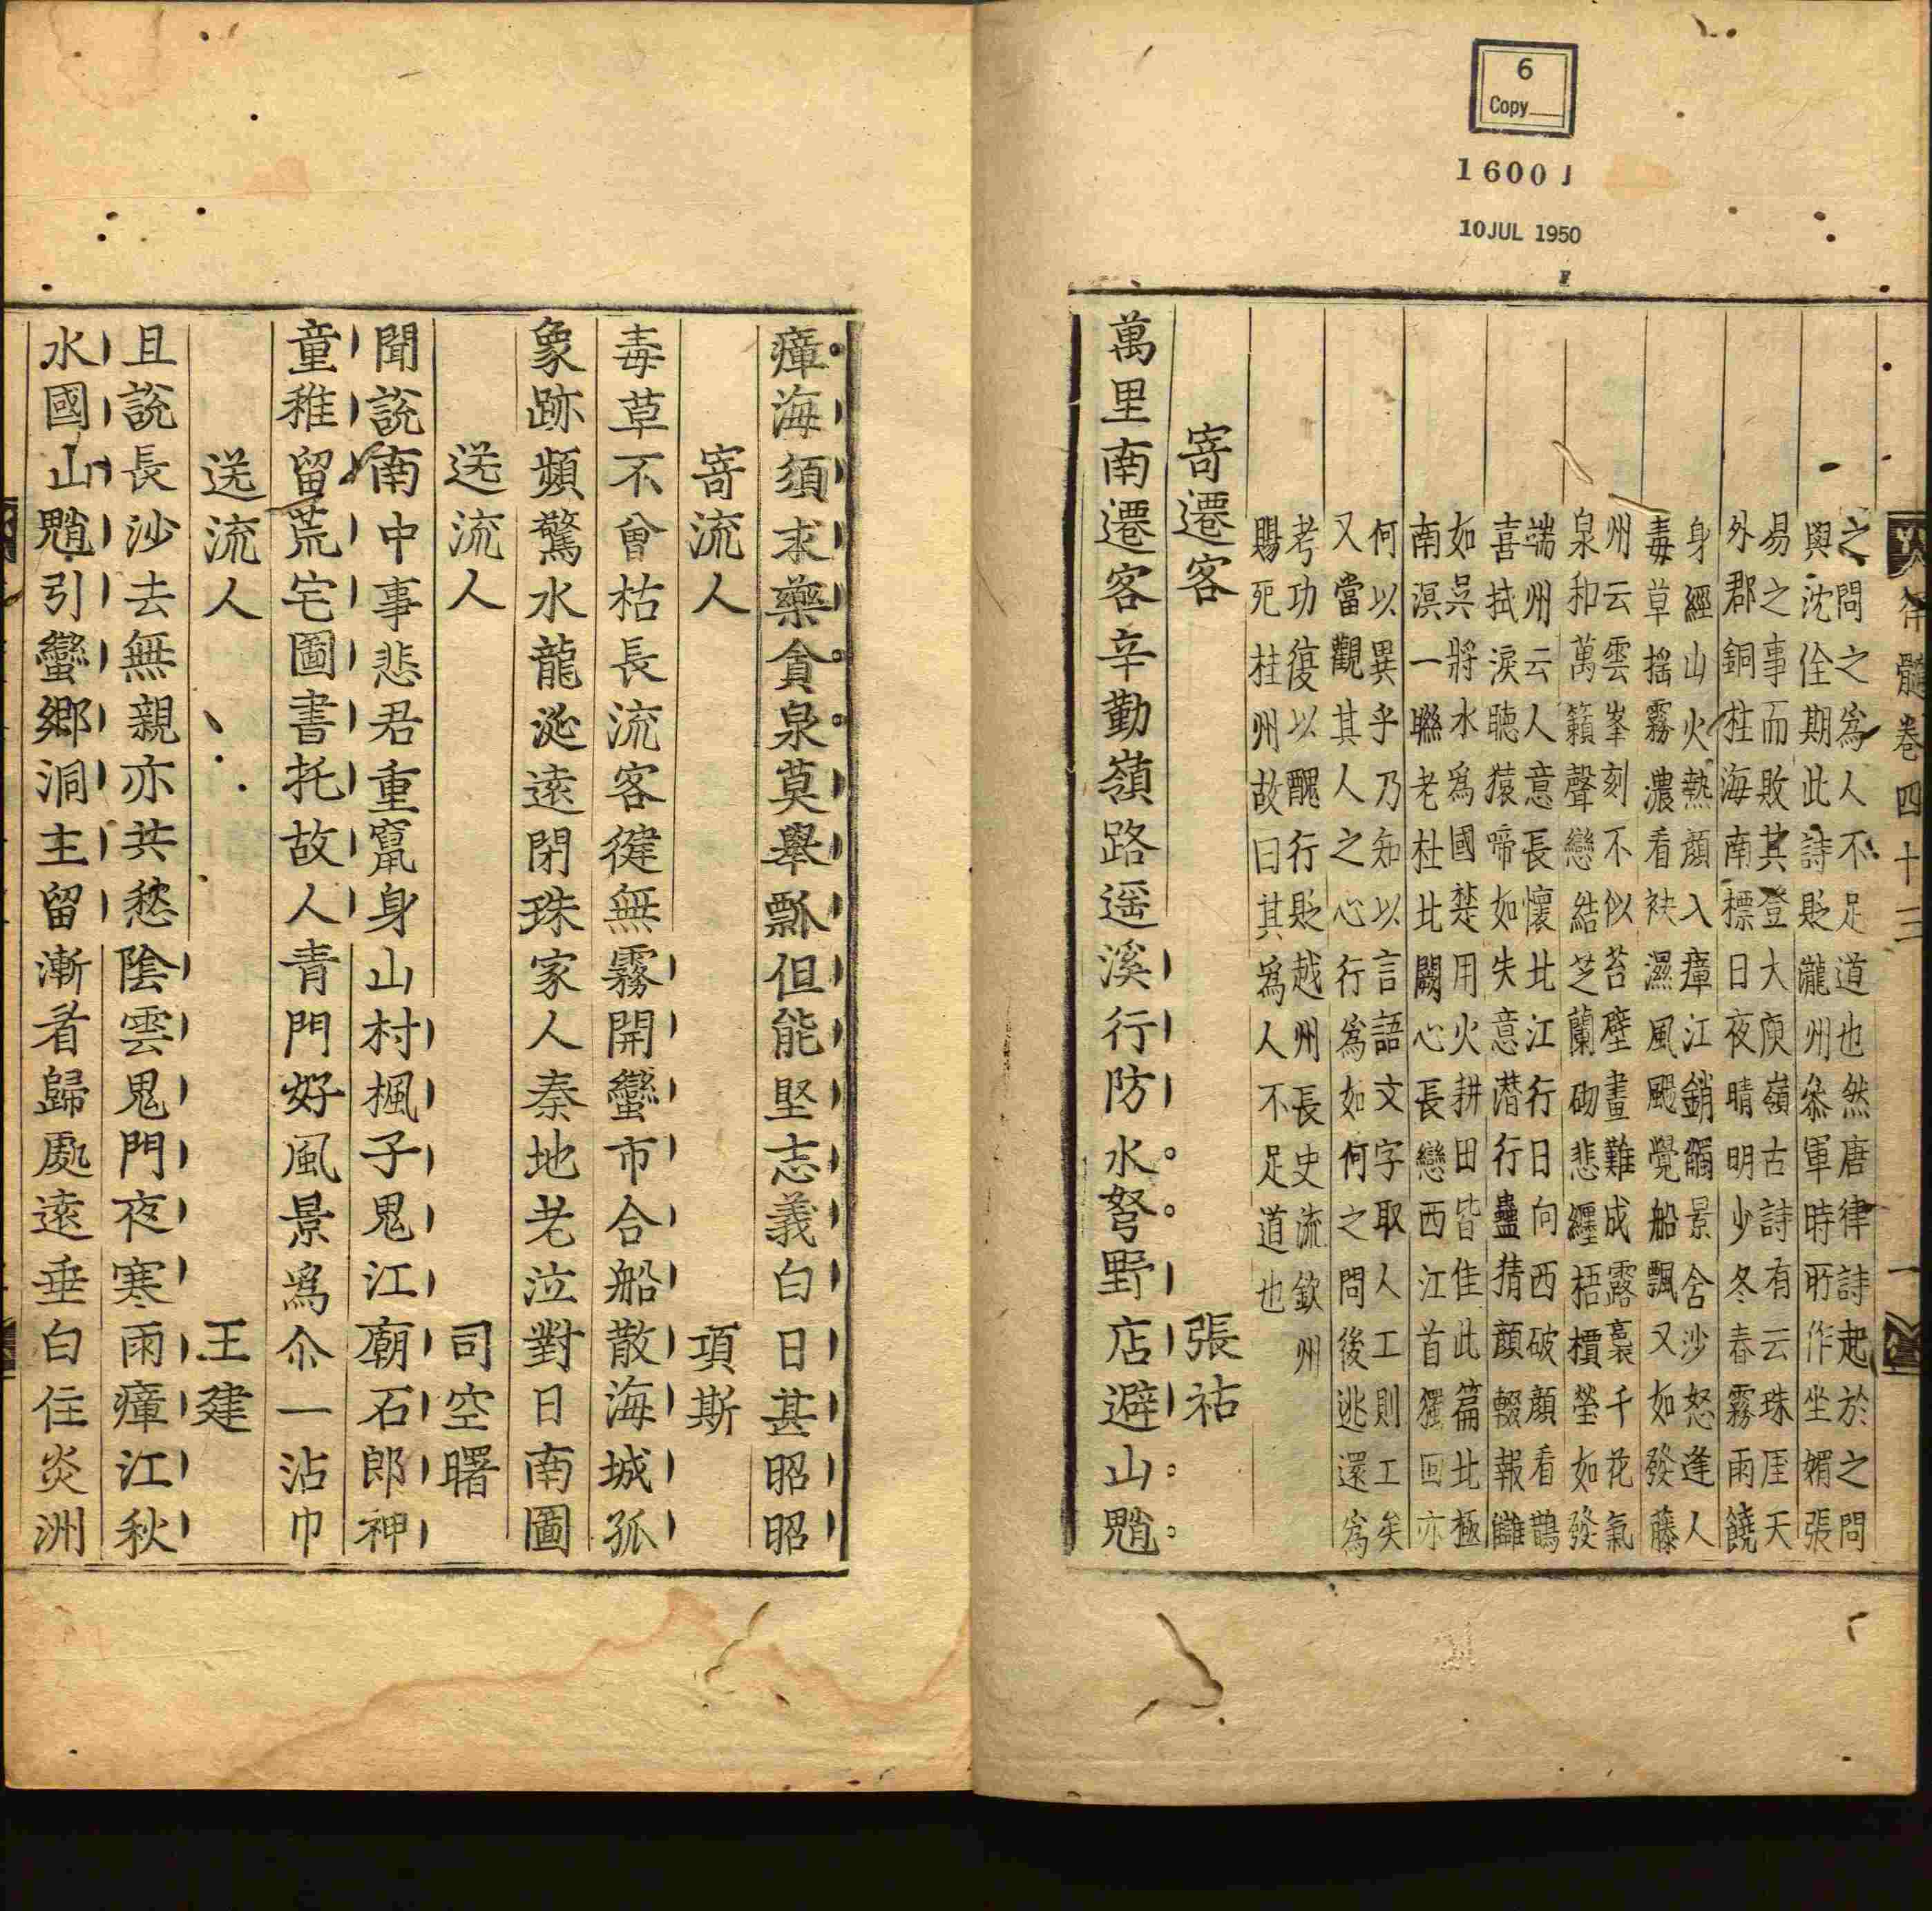 6
Copy
1600 J
10JUL 1950
律髓卷四十三
一
之問之爲人不足道也然唐律詩起於之問
與沈佺期此詩貶瀧州叅軍時所作坐媚張
易之事而敗其登大庾嶺古詩有云珠厓天
外郡銅柱海南標日夜晴明少冬春霧雨饒
身經山火熱顏入瘴江銷觸景含沙怒逢人
毒草摇霧濃看袂濕風颺覺船飄又如發藤
州云雲峯刻不似苔壁畫難成露裛千花氣
泉和萬籟聲戀結芝蘭砌悲纒梧檟塋如發
端州云人意長懷北江行日向西破顏看鵲
喜拭淚聽猿啼如失意潛行蠱猜顏輟報讎
如吳將水爲國楚用火耕田皆佳此篇北極
南溟一聯老杜北闕心長戀西江首獨回亦
何以異乎乃知以言語文字取人工則工矣
又當觀其人之心行爲如何之問後逃還爲
考功復以醜行貶越州長史流欽州
賜死桂州故曰其爲人不足道也
寄遷客 張祜
萬里南遷客辛勤嶺路遥溪行防水弩野店避山魈
瘴海須求藥貪泉莫舉瓢但能堅志義白日甚昭昭
寄流人 項斯
毒草不曾枯長流客健無霧開蠻市合船散海城孤
象跡頻驚水龍涎遠閉珠家人秦地老泣對日南圖
送流人 司空曙
聞說南中事悲君重竄身山村楓子鬼江廟石郎神
童稚留荒宅圖書托故人青門好風景爲尒一沾巾
送流人 王建
且說長沙去無親亦共愁陰雲鬼門夜寒雨瘴江秋
水國山魈引蠻鄉洞主留漸看歸處遠垂白住炎洲